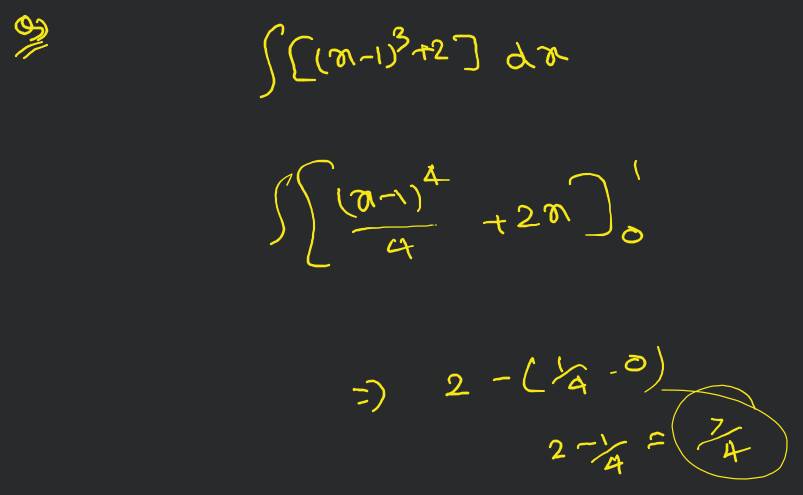 Q)
∫ [(x-1)³+2] dx
∫ [ (x-1)⁴/4 + 2x ]₀¹
⇒ 2 - (1/4 - 0)
2 - 1/4 = 7/4